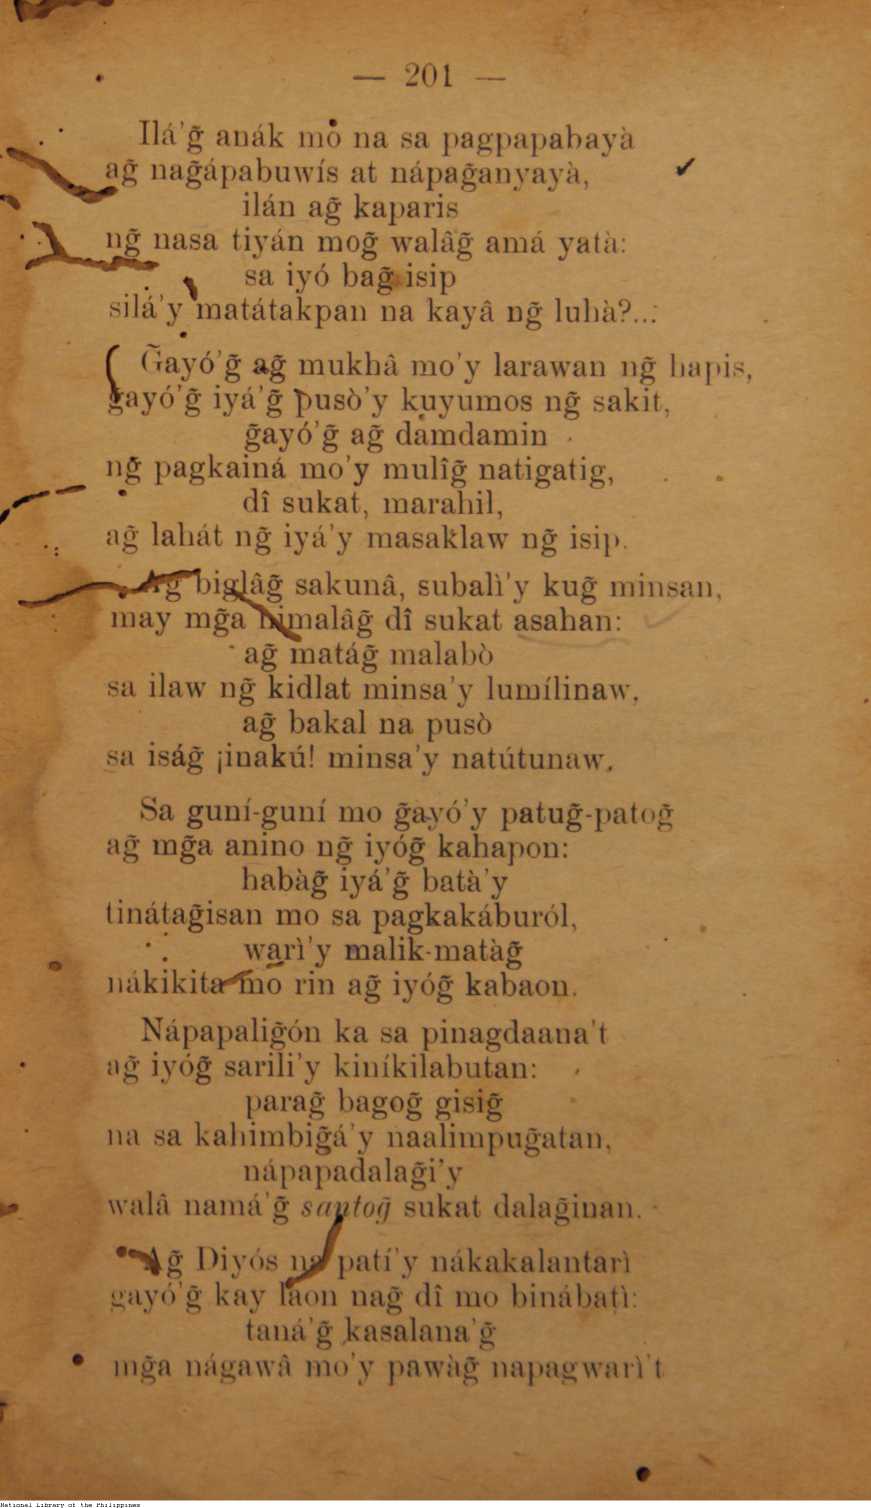 — 201 —
Ilá’g̃ anák mo na sa pagpapabayà
ag̃ nag̃ápabuwís at nápag̃anyayà,
ilán ag̃ kaparis
ng̃ nasa tiyán mog̃ walâg̃ amá yatà:
sa iyó bag̃ isip
silá’y matátakpan na kayâ ng̃ luhà?...
G̃ayó’g̃ ag̃ mukhâ mo’y larawan ng̃ hapis,
g̃ayó’g̃ iyá’g̃ pusò’y kuyumos ng̃ sakit,
g̃ayó’g̃ ag̃ damdamin
ng̃ pagkainá mo’y mulîg̃ natigatig,
dî sukat, marahil,
ag̃ lahát ng̃ iyá’y masaklaw ng̃ isip.
Ag̃ biglâg̃ sakunâ, subalì’y kug̃ minsan,
may mg̃a himalâg̃ dî sukat asahan:
ag̃ matág̃ malabò
sa ilaw ng̃ kidlat minsa’y lumílinaw,
ag̃ bakal na pusò
sa iság̃ ¡inakú! minsa’y natútunaw.
Sa guní-guní mo g̃ayó’y patug̃-patog̃
ag̃ mg̃a anino ng̃ iyóg̃ kahapon:
habàg̃ iyá’g̃ batà’y
tinátag̃isan mo sa pagkakáburól,
warì’y malik-matàg̃
nákikita mo rin ag̃ iyóg̃ kabaon.
Nápapalig̃ón ka sa pinagdaana’t
ag̃ iyóg̃ sarili’y kiníkilabutan:
parag̃ bagog̃ gisig̃
na sa kahimbig̃á’y naalimpug̃atan,
nápapadalag̃i’y
walâ namá’g̃ santog̃ sukat dalag̃inan.
Ag̃ Diyós na patí’y nákakalantarì
gayó’g̃ kay laon nag̃ dî mo binábatì:
taná’g̃ kasalana’g̃
mg̃a nágawâ mo’y pawàg̃ napagwarì’t
National Library of the Philippines